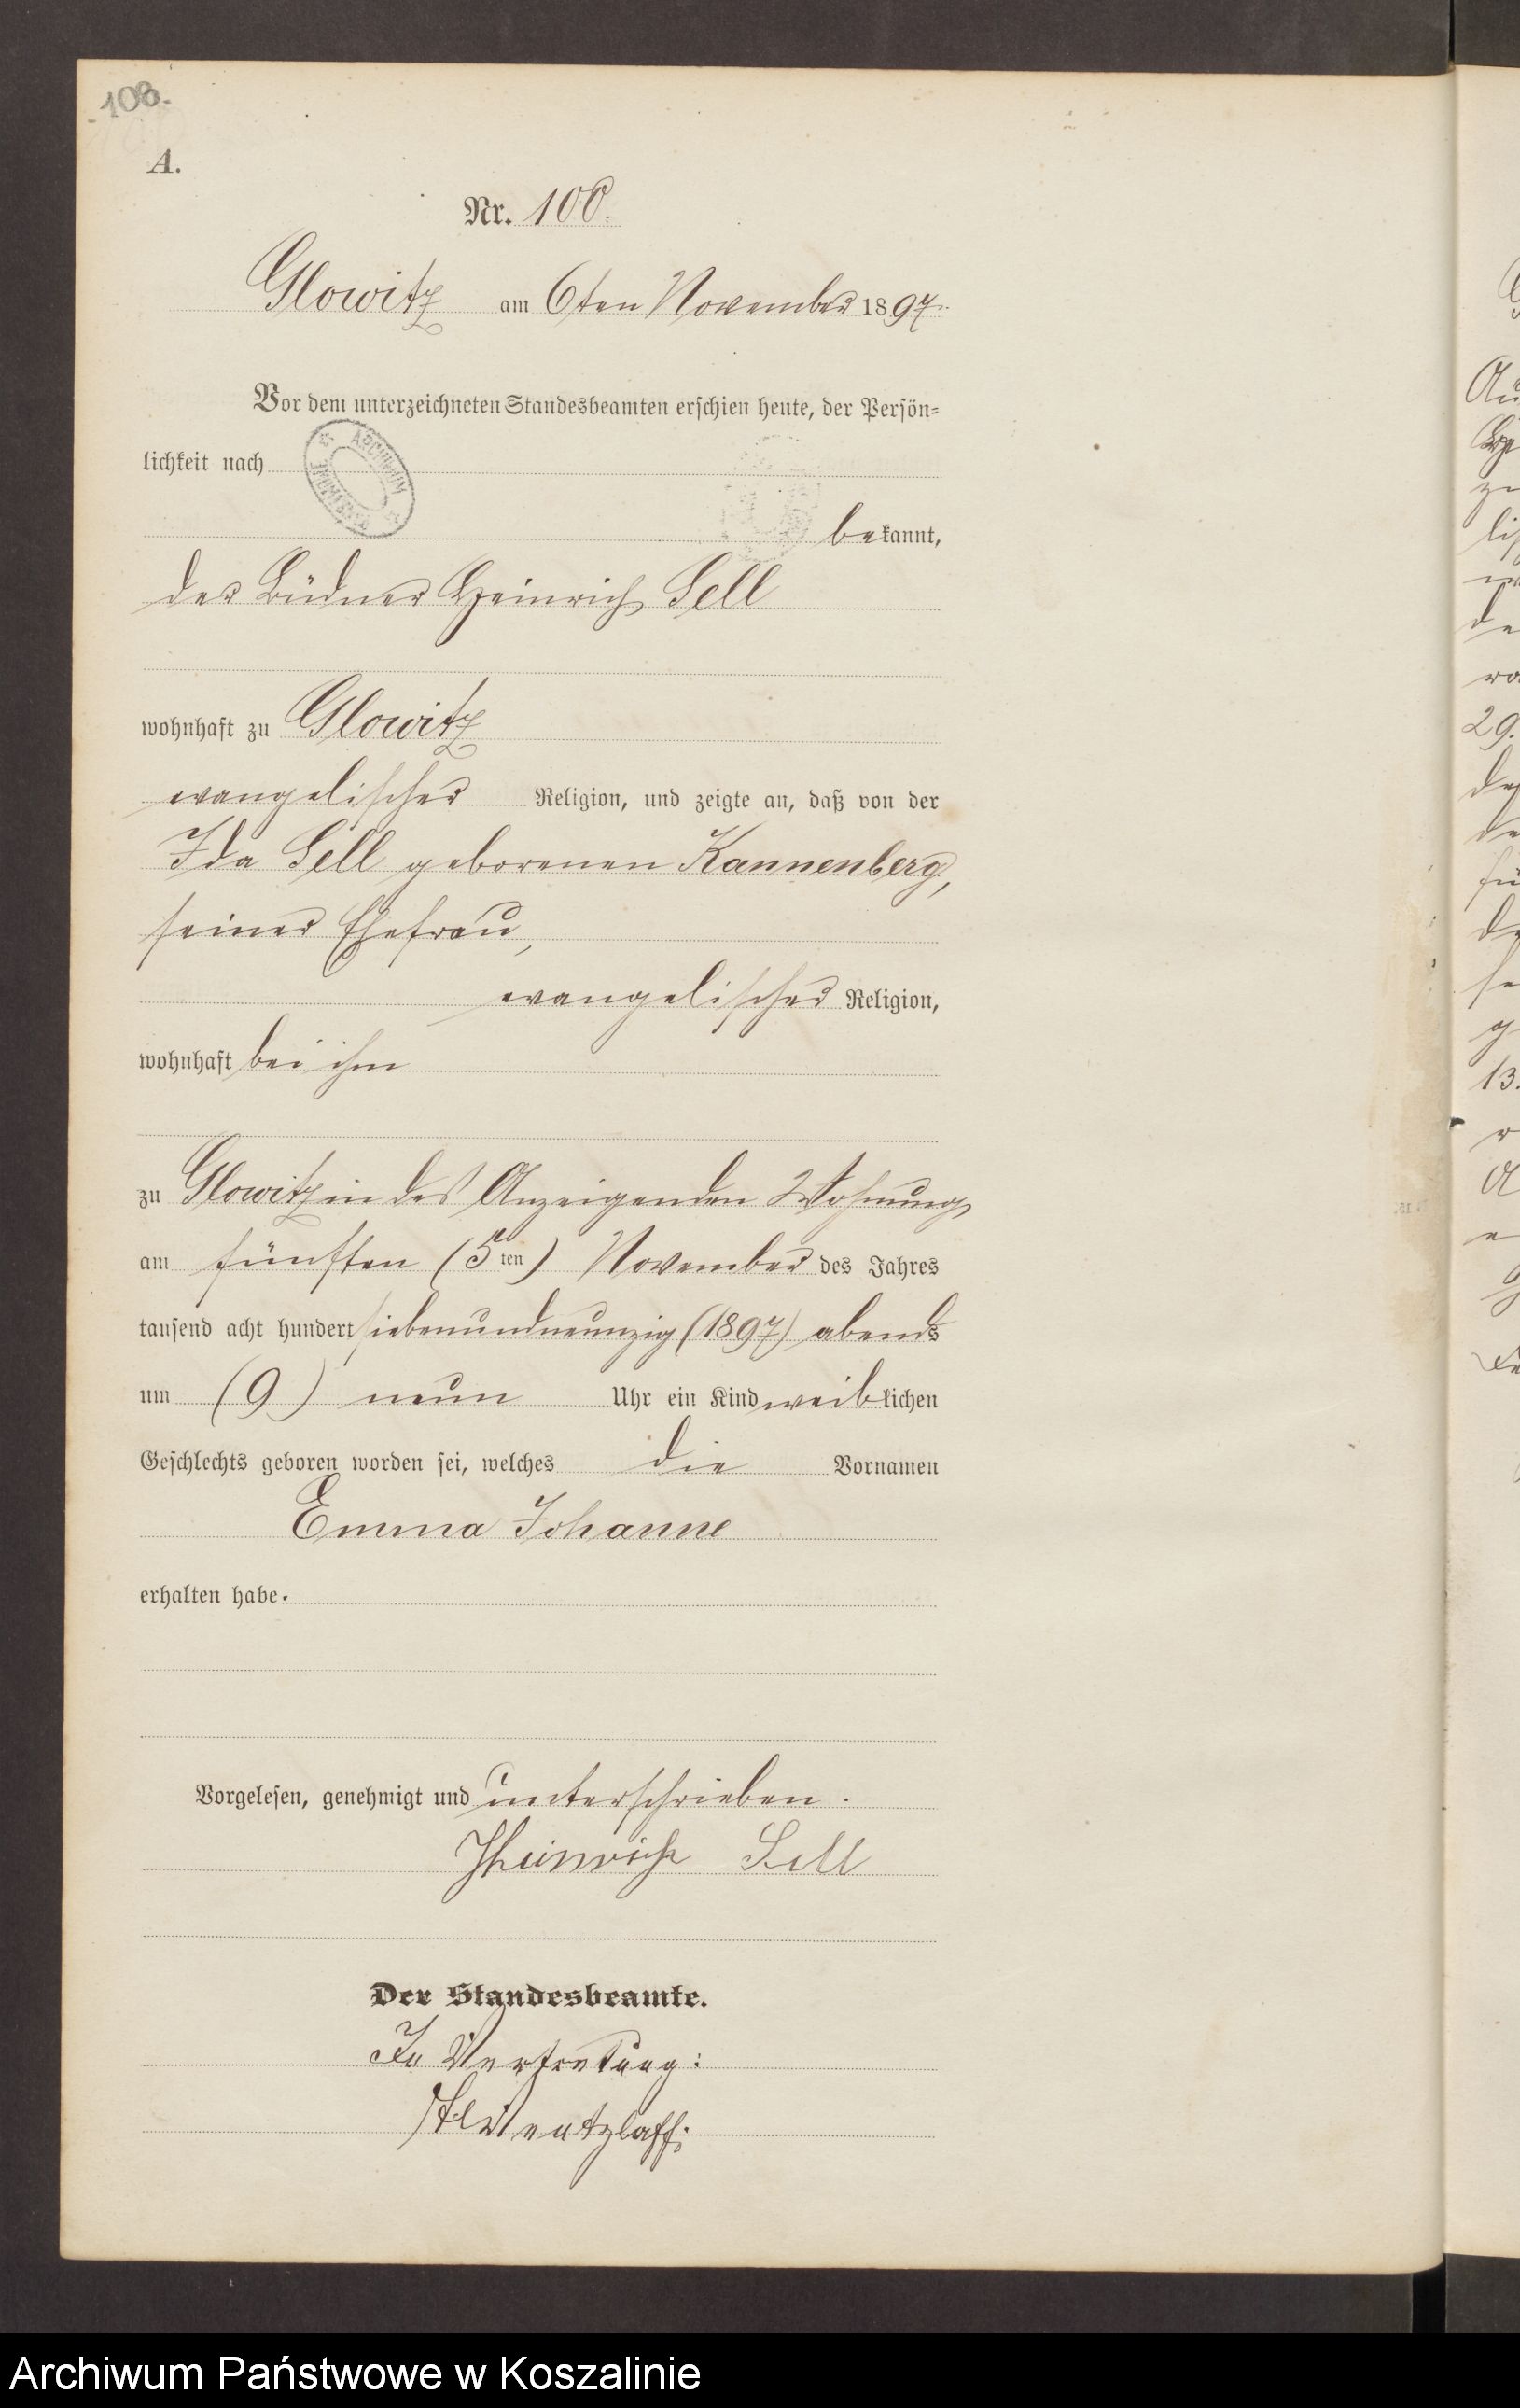 108.
A.
Nr. 100.
Glowitz am 6ten November 1897.
Vor dem unterzeichneten Standesbeamten erschien heute, der Persön-
lichkeit nach
bekannt,
der Büdner Heinrich Sell
wohnhaft zu Glowitz
evangelischer Religion, und zeigte an, daß von der
Ida Sell geborenen Kannenberg,
seiner Ehefrau,
evangelischer Religion,
wohnhaft bei ihm
zu Glowitz in des Anzeigenden Wohnung
am fünften (5ten) November des Jahres
tausend acht hundert siebenundneunzig (1897) abends
um (9) neun Uhr ein Kind weiblichen
Geschlechts geboren worden sei, welches die Vornamen
Emma Johanne
erhalten habe.
Vorgelesen, genehmigt und unterschrieben.
Heinrich Sell
Der Standesbeamte.
In Vertretung:
Wentzlaff.
Archiwum Państwowe w Koszalinie